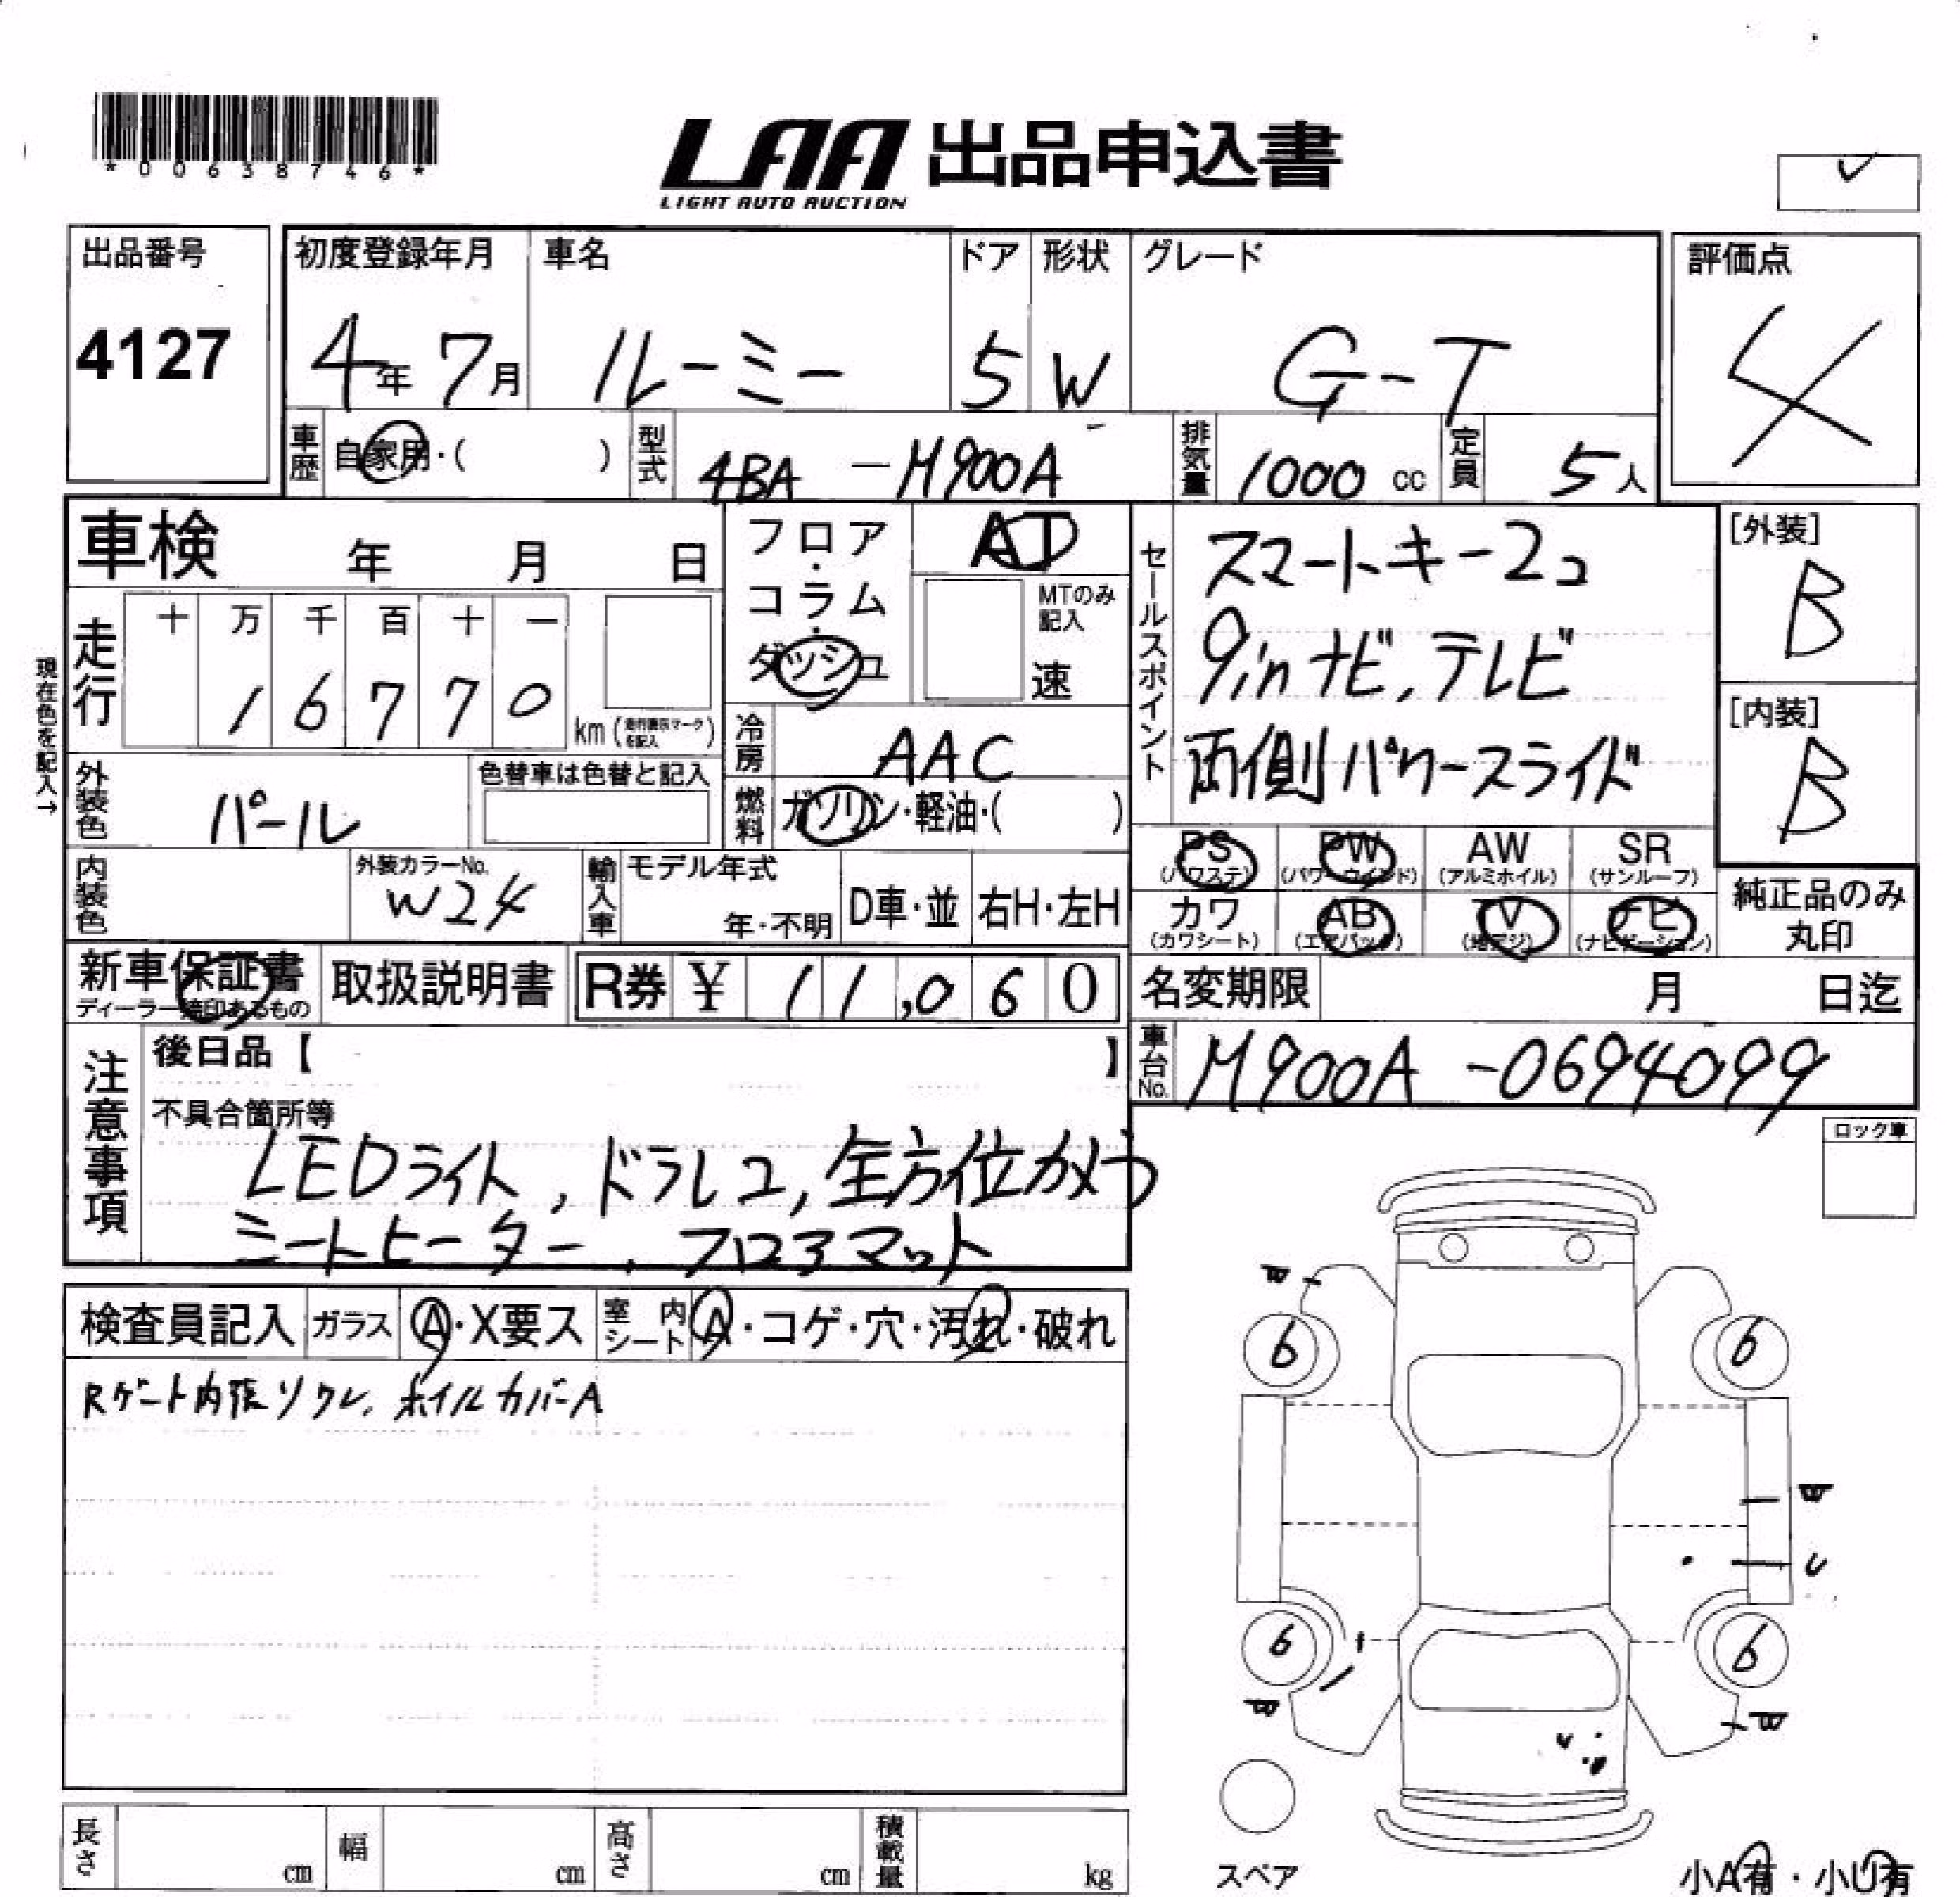 *00638746*
LAA 出品申込書
LIGHT AUTO AUCTION
出品番号
4127
初度登録年月 車名 ドア 形状 グレード
4年 7月 ルーミー 5 W G-T
評価点
4
車歴 自家用・( ) 型式 4BA-M900A 排気量 1000 cc 定員 5人
車検 年 月 日
フロア・コラム・ダッシュ AT
MTのみ記入 速
セールスポイント
スマートキー2コ
9inナビ,テレビ
両側パワースライド
[外装]
B
[内装]
B
現在色を記入→
走行 十 万 千 百 十 一
1 6 7 7 0 km (走行表示マークを記入)
冷房 AAC
燃料 ガソリン・軽油・( )
外装色 パール 色替車は色替と記入
内装色 外装カラーNo. W24
輸入車 モデル年式 年・不明 D車・並 右H・左H
PS (パワステ) PW (パワーウインド) AW (アルミホイル) SR (サンルーフ)
カワ (カワシート) AB (エアバッグ) TV (地デジ) ナビ (ナビゲーション)
純正品のみ丸印
新車保証書 ディーラー捺印あるもの 取扱説明書 R券 ¥ 11,060
名変期限 月 日迄
車台No. M900A-0694099
注意事項
後日品【 】
不具合箇所等
LEDライト,ドラレコ,全方位カメラ
シートヒーター,フロアマット
ロック車
検査員記入 ガラス A・X要ス 室内シート A・コゲ・穴・汚れ・破れ
Rゲート内張ソクレ.ホイルカバーA
W
6 6
W
U
6 6
W W
U
長さ cm 幅 cm 高さ cm 積載量 kg
スペア
小A有・小U有